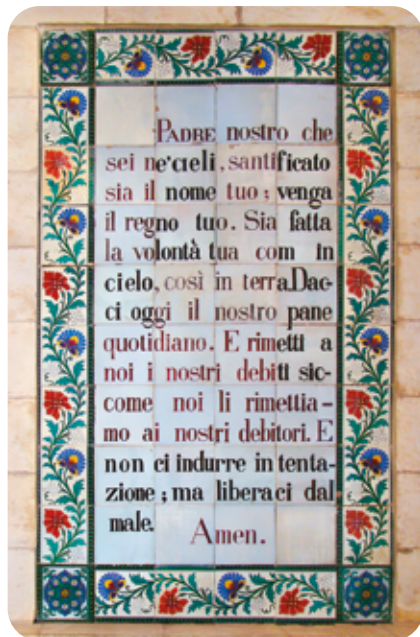 PADRE nostro che
sei ne'cieli, santificato
sia il nome tuo; venga
il regno tuo. Sia fatta
la volontà tua com in
cielo, così in terraDac-
ci oggi il nostro pane
quotidiano. E rimetti a
noi i nostri debiti sic-
come noi li rimettia-
mo ai nostri debitori. E
non ci indurre in tenta-
zione; ma liberaci dal
male. Amen.